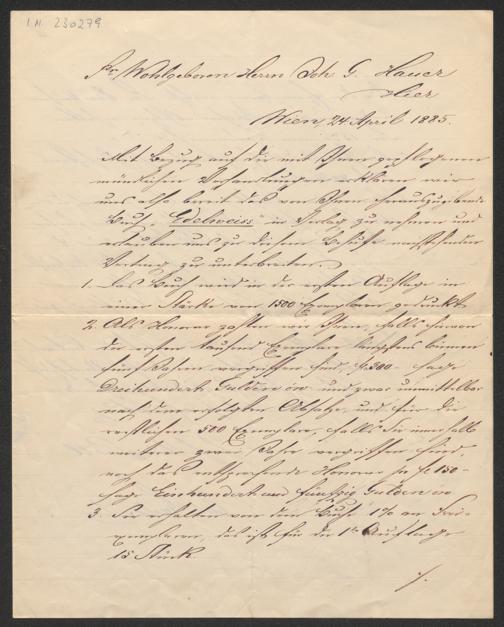 I.N. 230279
Sr. Wohlgeboren Herrn Joh. G. Hauer
Hier
Wien, 24 April 1885.
Mit Bezug auf die mit Ihnen gepflogenen
mündlichen Verhandlungen erklären wir
uns also bereit das von Ihnen herauszugebende
Buch „Edelweiss" in Verlag zu nehmen und
erlauben uns zu diesem Behufe nachstehenden
Vertrag zu unterbreiten.
1. Das Buch wird in der ersten Auflage in
einer Stärke von 1500 Exemplaren gedruckt.
2. Als Honorar zahlen wir Ihnen, falls hievon
die ersten tausend Exemplare längstens binnen
fünf Jahren vergriffen sind, fl. 300 - sage
Dreihundert Gulden öw und zwar unmittelbar
nach dem erfolgten Absatze, und für die
restlichen 500 Exemplare, falls die innerhalb
weiterer zwei Jahre vergriffen sind,
noch das entsprechende Honorar per fl 150 -
sage Einhundert und fünfzig Gulden öw
3. Sie erhalten von dem Buche 1% an Frei-
exemplaren, das ist für die 1te Auflage
15 Stück